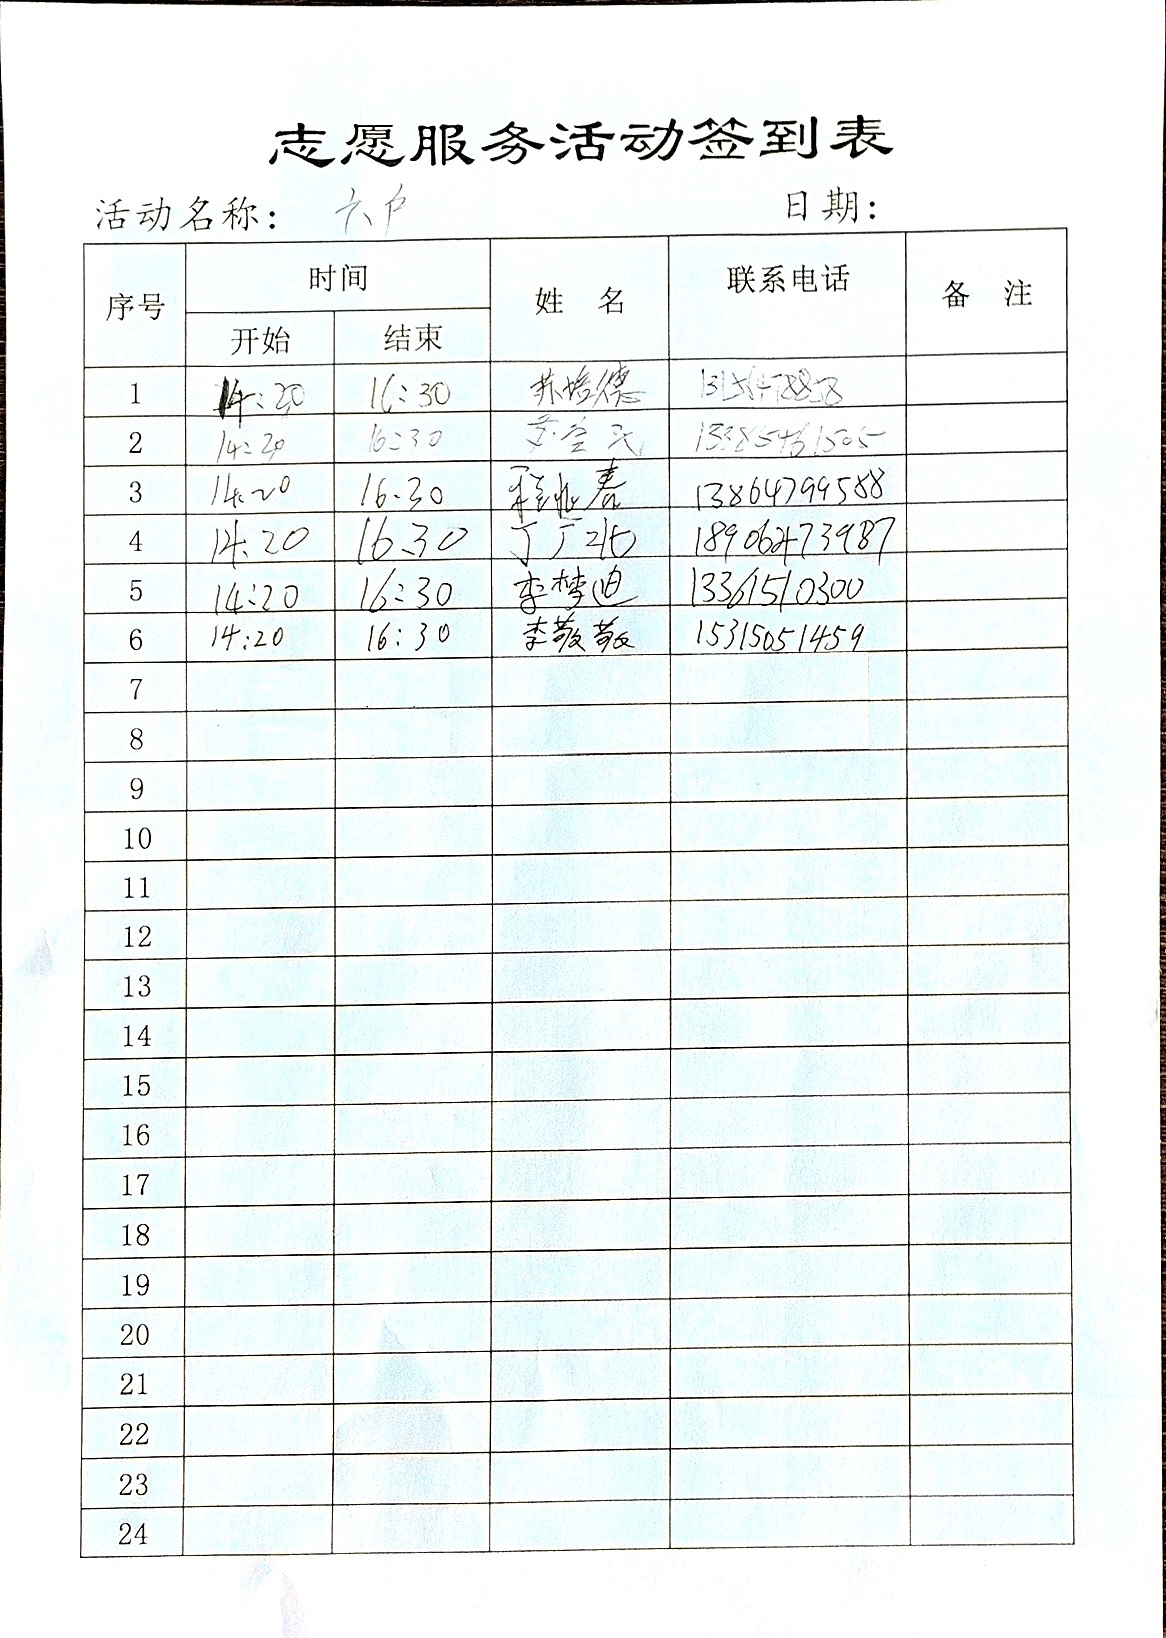 志愿服务活动签到表
活动名称： 六户 日期：
序号 时间 姓 名 联系电话 备 注
开始 结束
1 14:20 16:30 苏培德
2 14:20 16:30 13385461505
3 14:20 16:30 13864799588
4 14:20 16:30 18906473987
5 14:20 16:30 李梦迪 13361510300
6 14:20 16:30 李敬敬 15315051459
7
8
9
10
11
12
13
14
15
16
17
18
19
20
21
22
23
24